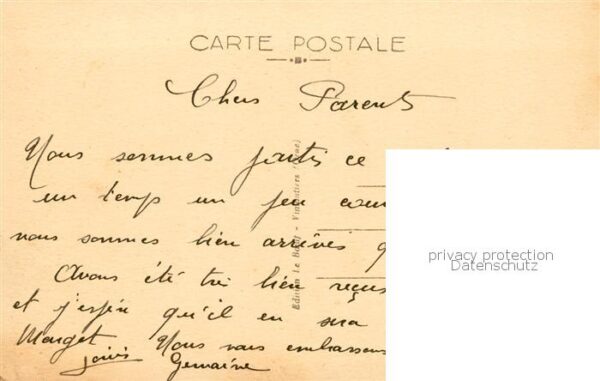 CARTE POSTALE
Chers Parents
Nous sommes partis ce
un temps un peu
nous sommes bien arrivés
Avons été très bien reçus
et j'espère qu'il en sera
Nous vous embrassons
Germaine
Edition Le
privacy protection
Datenschutz